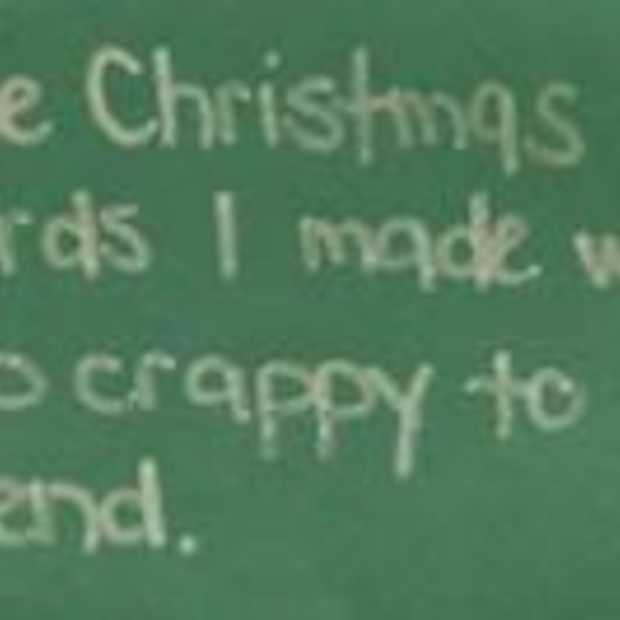 e Christmas
rds I made w
o crappy to
end.